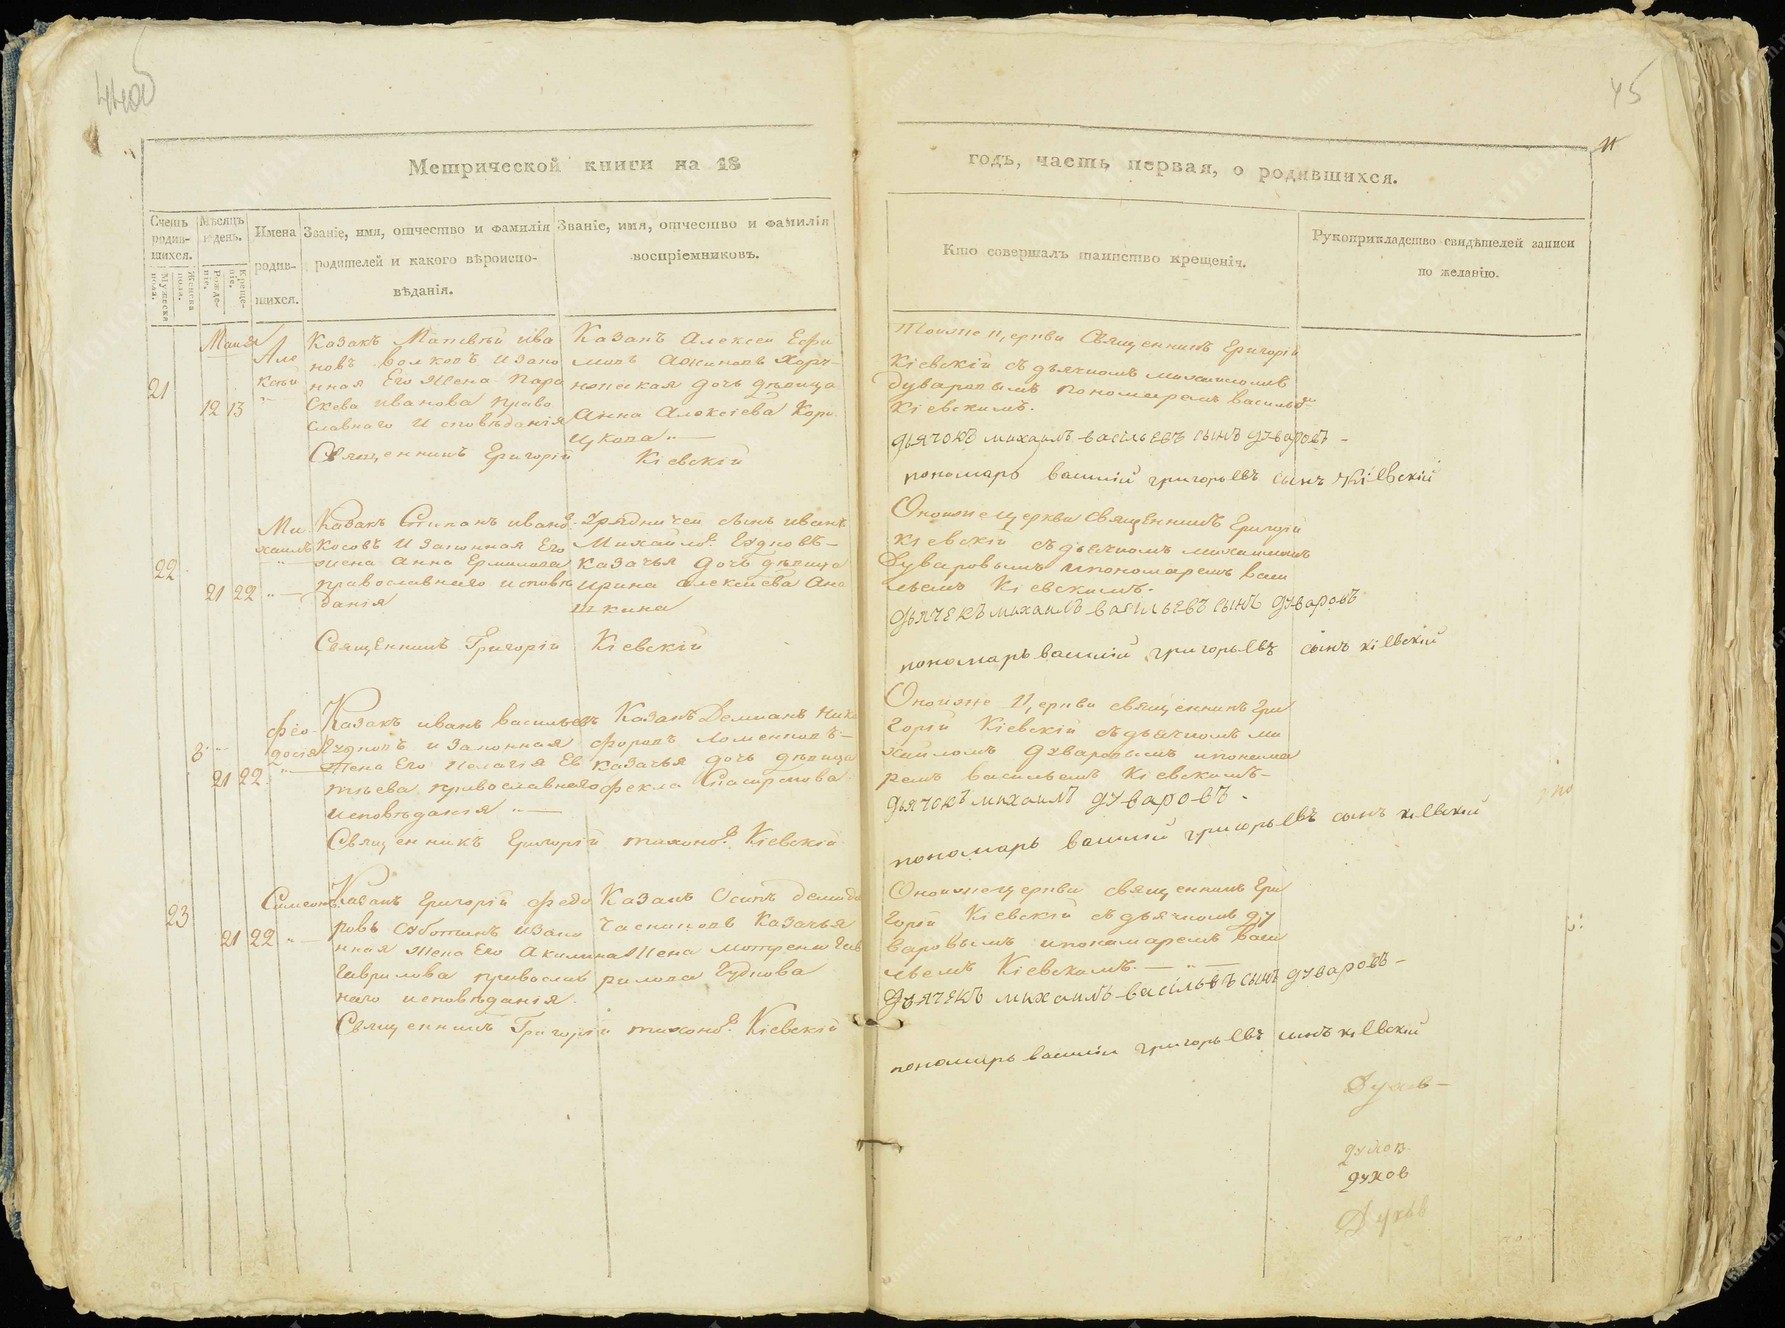 45
Метрической книги на 18
годъ, часть первая, о родившихся.
Счетъ родив-шихся.
Мужеска пола.
Женска пола.
Мѣсяцъ и день.
Рожде-нiе.
Креще-нiе.
Имена родив-шихся.
Званiе, имя, отчество и фамилiя
родителей и какого вѣроиспо-
вѣданiя.
Званiе, имя, отчество и фамилiя
воспрiемниковъ.
Кто совершалъ таинство крещенiя.
Рукоприкладство свидѣтелей записи
по желанiю.
21
Маия
12 13
Але
ксѣй
Казакъ Матвѣй ива
новъ волковъ и зако
нная Его жена Пара
скева иванова право
славнаго исповѣданiя
Священникъ Григорiй Кiевскiй
Казакъ Алексеи Ефи
мовъ
дочь дѣвица
Анна Алексiева
Тоиже церкви Священникъ Григорiй
Кiевскiй съ дьячкомъ михаиломъ
дуваровымъ пономаремъ василье
Кiевскимъ.
дьячокъ михаилъ васильевъ сынъ дуваровъ
пономарь василий григорьевъ сынъ Кiевскiй
22
21 22
Ми
хаилъ
Казакъ Степанъ ивано
Косовъ и законная Его
жена анна Ермилова
православнаго исповѣ
данiя
Священникъ Григорiй Кiевскiй
Урядничеи сынъ иванъ
Михайло
казачья дочь дѣвица
ирина алексиева Ана
шкина
Оноиже церкви священникъ Григорiй
кiевскiй съ дьячкомъ михаиломъ
Дуваровымъ ипономаремъ васи
льемъ Кiевскимъ.
дьячекъ михаилъ васильевъ сынъ дуваровъ
пономарь василий григорьевъ сынъ кiевскiй
21 22
Фео
досiя
Казакъ иванъ васильевъ
Гудковъ и законная
жена Его Пелагiя Ев
тѣева православнаго
исповѣданiя
Священникъ Григорiй тихоно. Кiевскiй
Казакъ Демианъ Ники
форовъ
казачья дочь дѣвица
фекла Спиридова
Оноиже церкви священникъ Гри
горiй Кiевскiй съ дьячкомъ ми
хаиломъ дуваровымъ ипонома
ремъ васильемъ Кiевскимъ
дьячокъ михаилъ дуваровъ
пономарь василий григорьевъ сынъ кiевскiй
23
21 22
Симеонъ
Казакъ Григорiй федо
ровъ Суботинъ изако
нная жена Его Акилина
Гаврилова православ
наго исповѣданiя.
Священникъ Григорiй тихоно. Кiевскiй
Казакъ Осипъ демидо
казачья
жена мотрена Гав
рилова Гудкова
Оноиже церкви священникъ Гри
горiй Кiевскiй съ дьячкомъ ду
варовымъ ипономаремъ васи
льемъ Кiевскимъ.
Дьячекъ михаилъ васильевъ сынъ дуваровъ
пономарь василий григорьевъ сынъ кiевскiй
духов